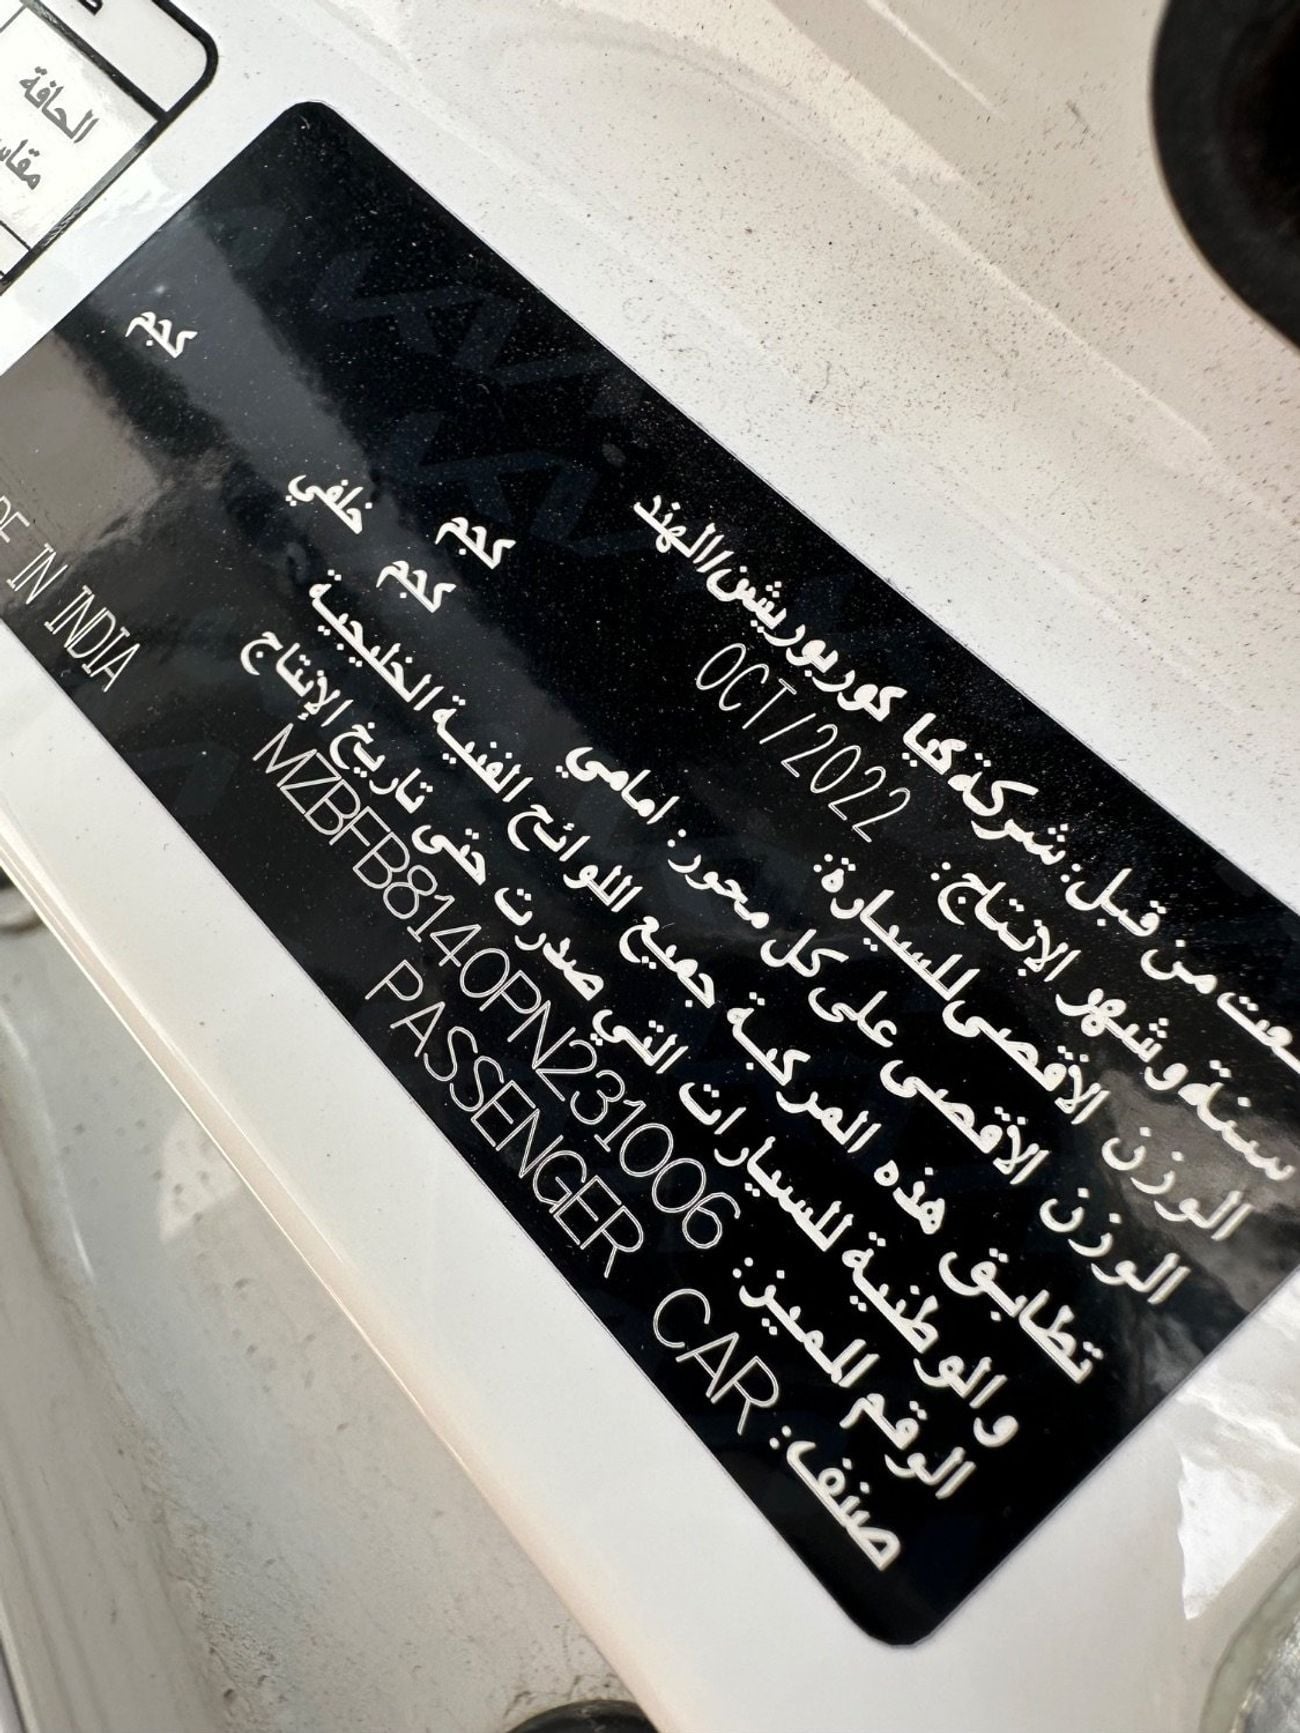 الحافة
صنعت من قبل: شركة كيا كوربوريشن/الهند
سنة وشهر الإنتاج: OCT/2022
الوزن الأقصى للسيارة: كجم
الوزن الأقصى على كل محور: امامي كجم خلفي كجم
تطابق هذه المركبة جميع اللوائح الفنية الخليجية
والوطنية للسيارات التي صدرت حتى تاريخ الإنتاج
الرقم المميز: MZBFB8140PN231006
صنف: PASSENGER CAR IN INDIA